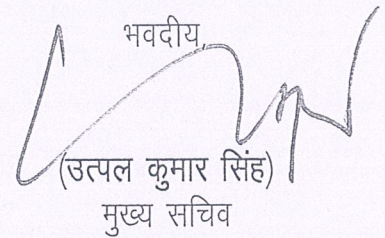 भवदीय,
(उत्पल कुमार सिंह)
मुख्य सचिव